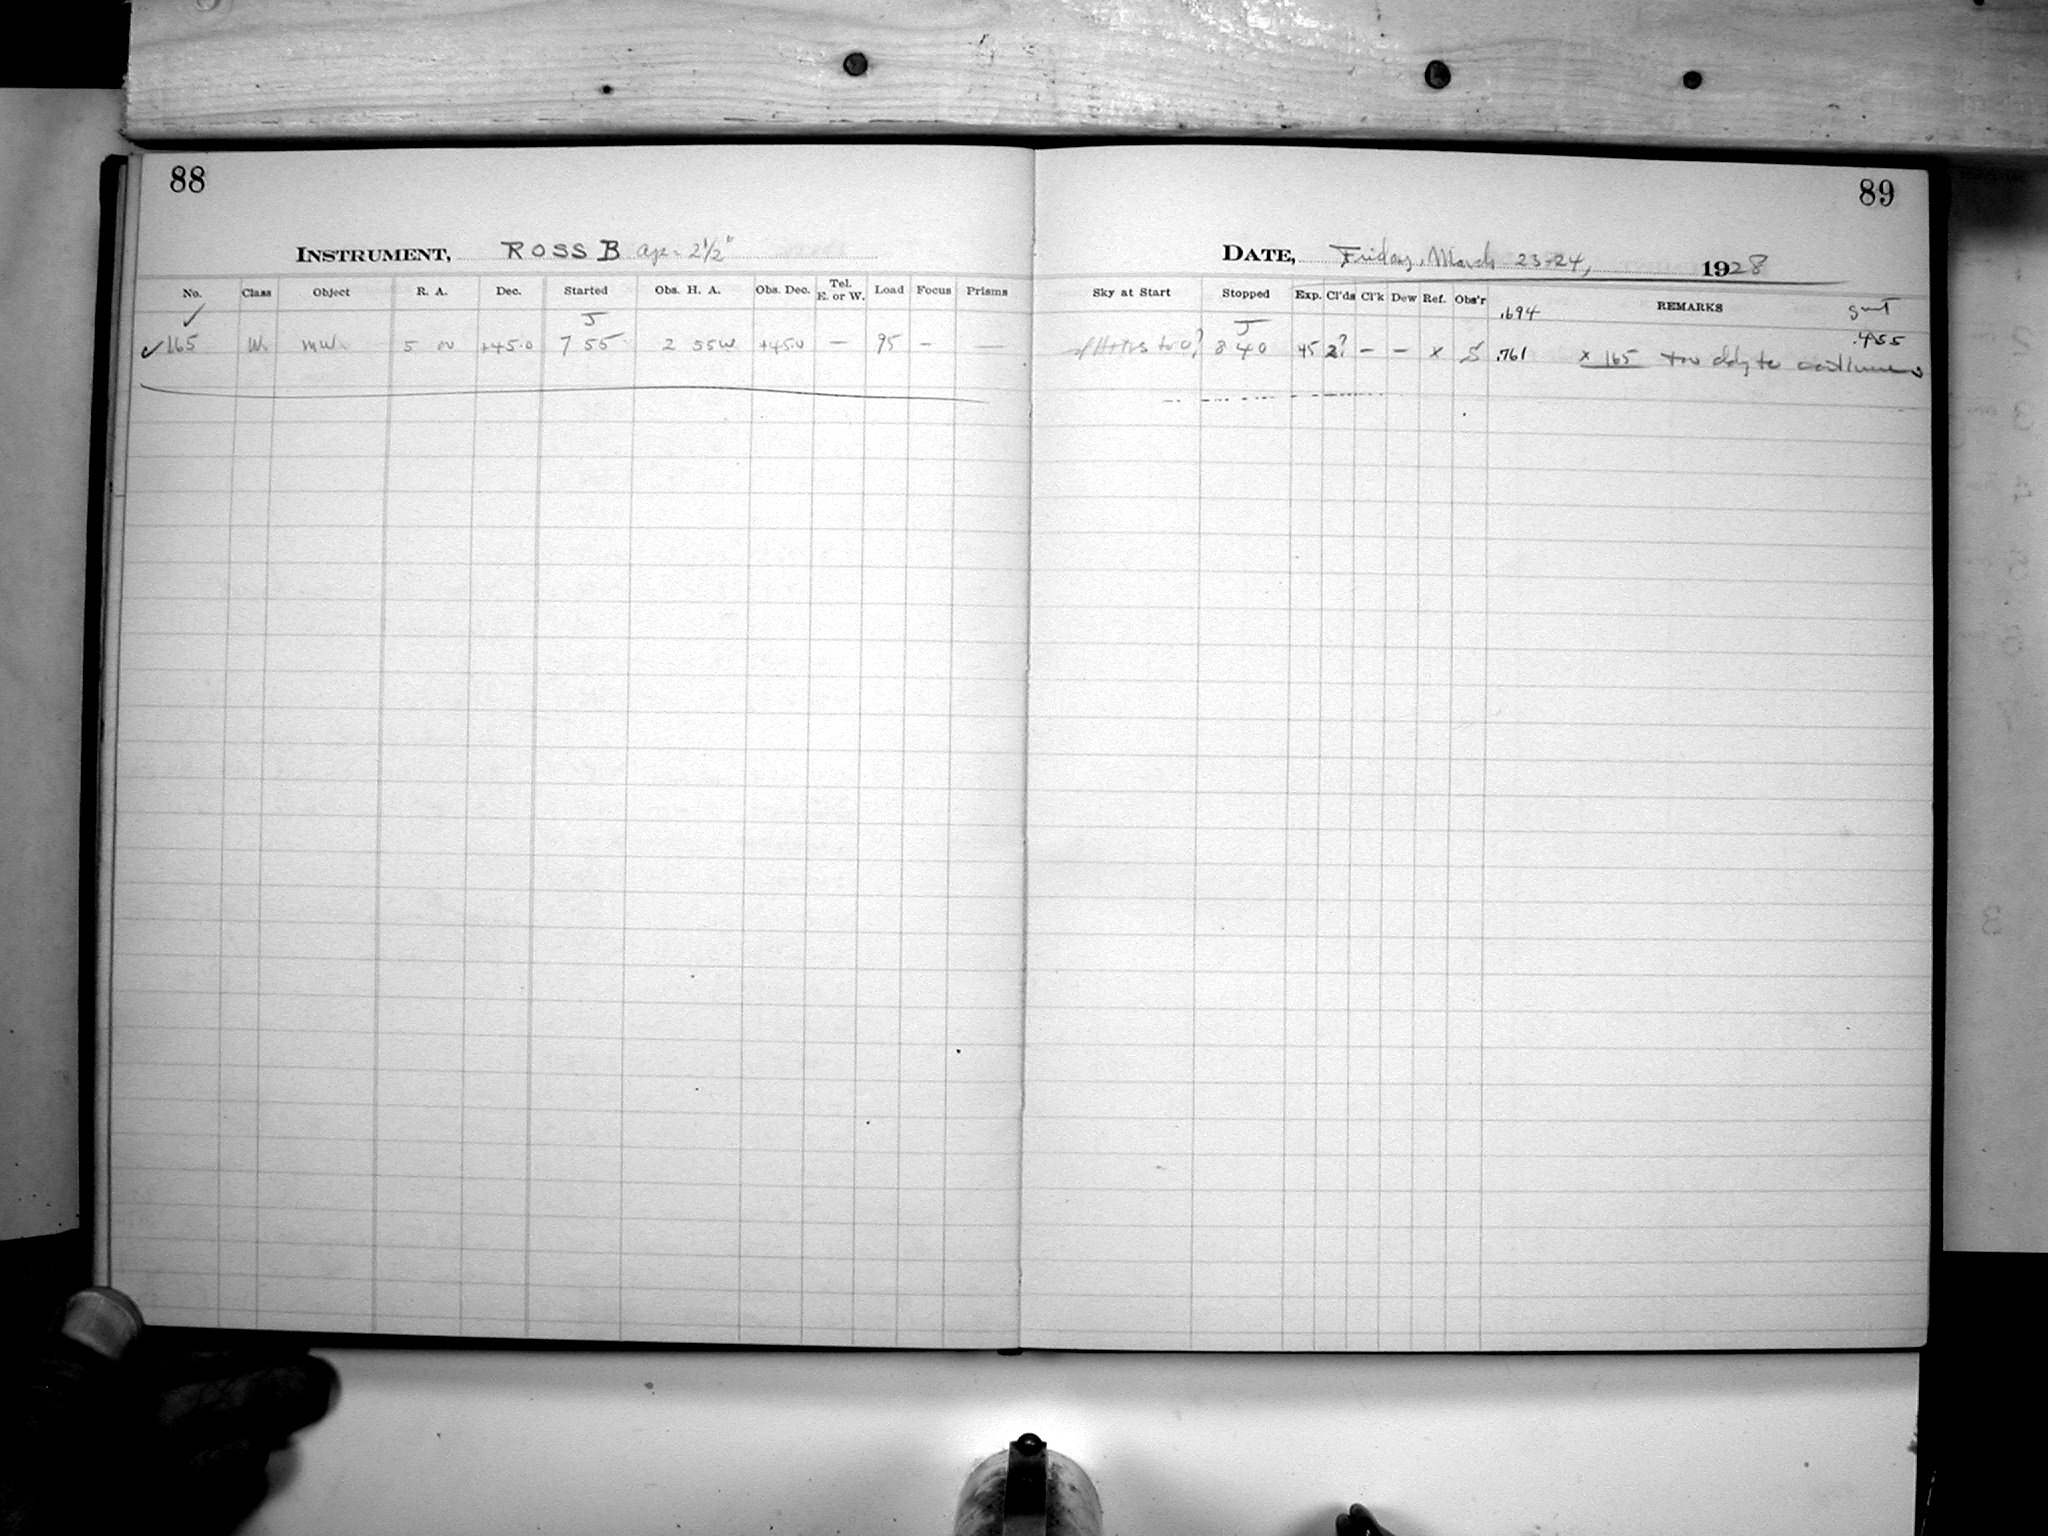 88
89
INSTRUMENT, ROSS B ap. 2½"
DATE, Friday, March 23-24, 1928
No. Class Object R. A. Dec. Started Obs. H. A. Obs. Dec. Tel. E. or W. Load Focus Prisms
Sky at Start Stopped Exp. Cl'ds Cl'k Dew Ref. Obs'r REMARKS
.694
✓ J
J .455
✓165 W. MW. 5 00 +45.0 7 55 2 55W +45.0 — 95 — —
8 40 45 2? — — x S .761 x 165 too cldy to continue